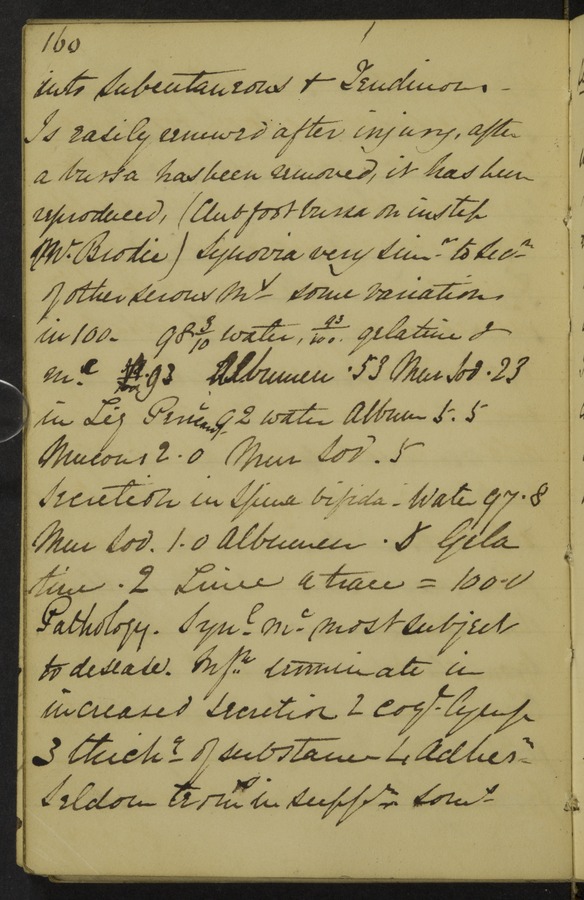 160
into Subcutaneous & Tendinous -
Is easily renewed after injury, after
a bursa has been removed, it has been
reproduced, (Club foot bursa on instep
Mr. Brodie) Synovia very Simr to Secn
of other serous Ms - some variations
in 100. 98 3/10 water, 93/100. gelatine &
93 Albumen .53 Mur Sod .23
in Liq 92 water Album 5.5
Mucous 2.0 Mur Sod. .5
Secretion in Spina bifida - Water 97.8
Mur Sod. 1.0 Albumen . 8 Gela
tine . 2 Lime a trace = 100.0
Pathology. Synl mc most subject
to disease. terminate in
increased secretion 2 Coagl Lymph
3 thickg of substance 4 Adhesn
Seldom in suppn